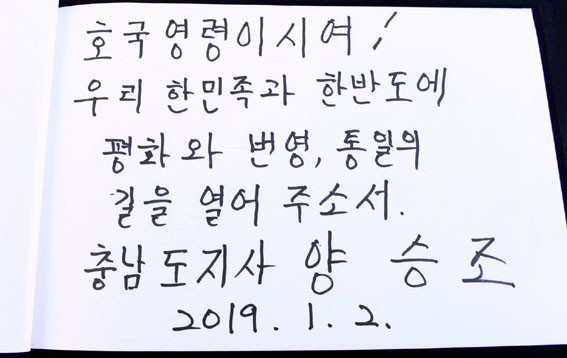 호국영령이시여!
우리 한민족과 한반도에
평화와 번영, 통일의
길을 열어 주소서.
충남도지사 양 승 조
2019. 1. 2.